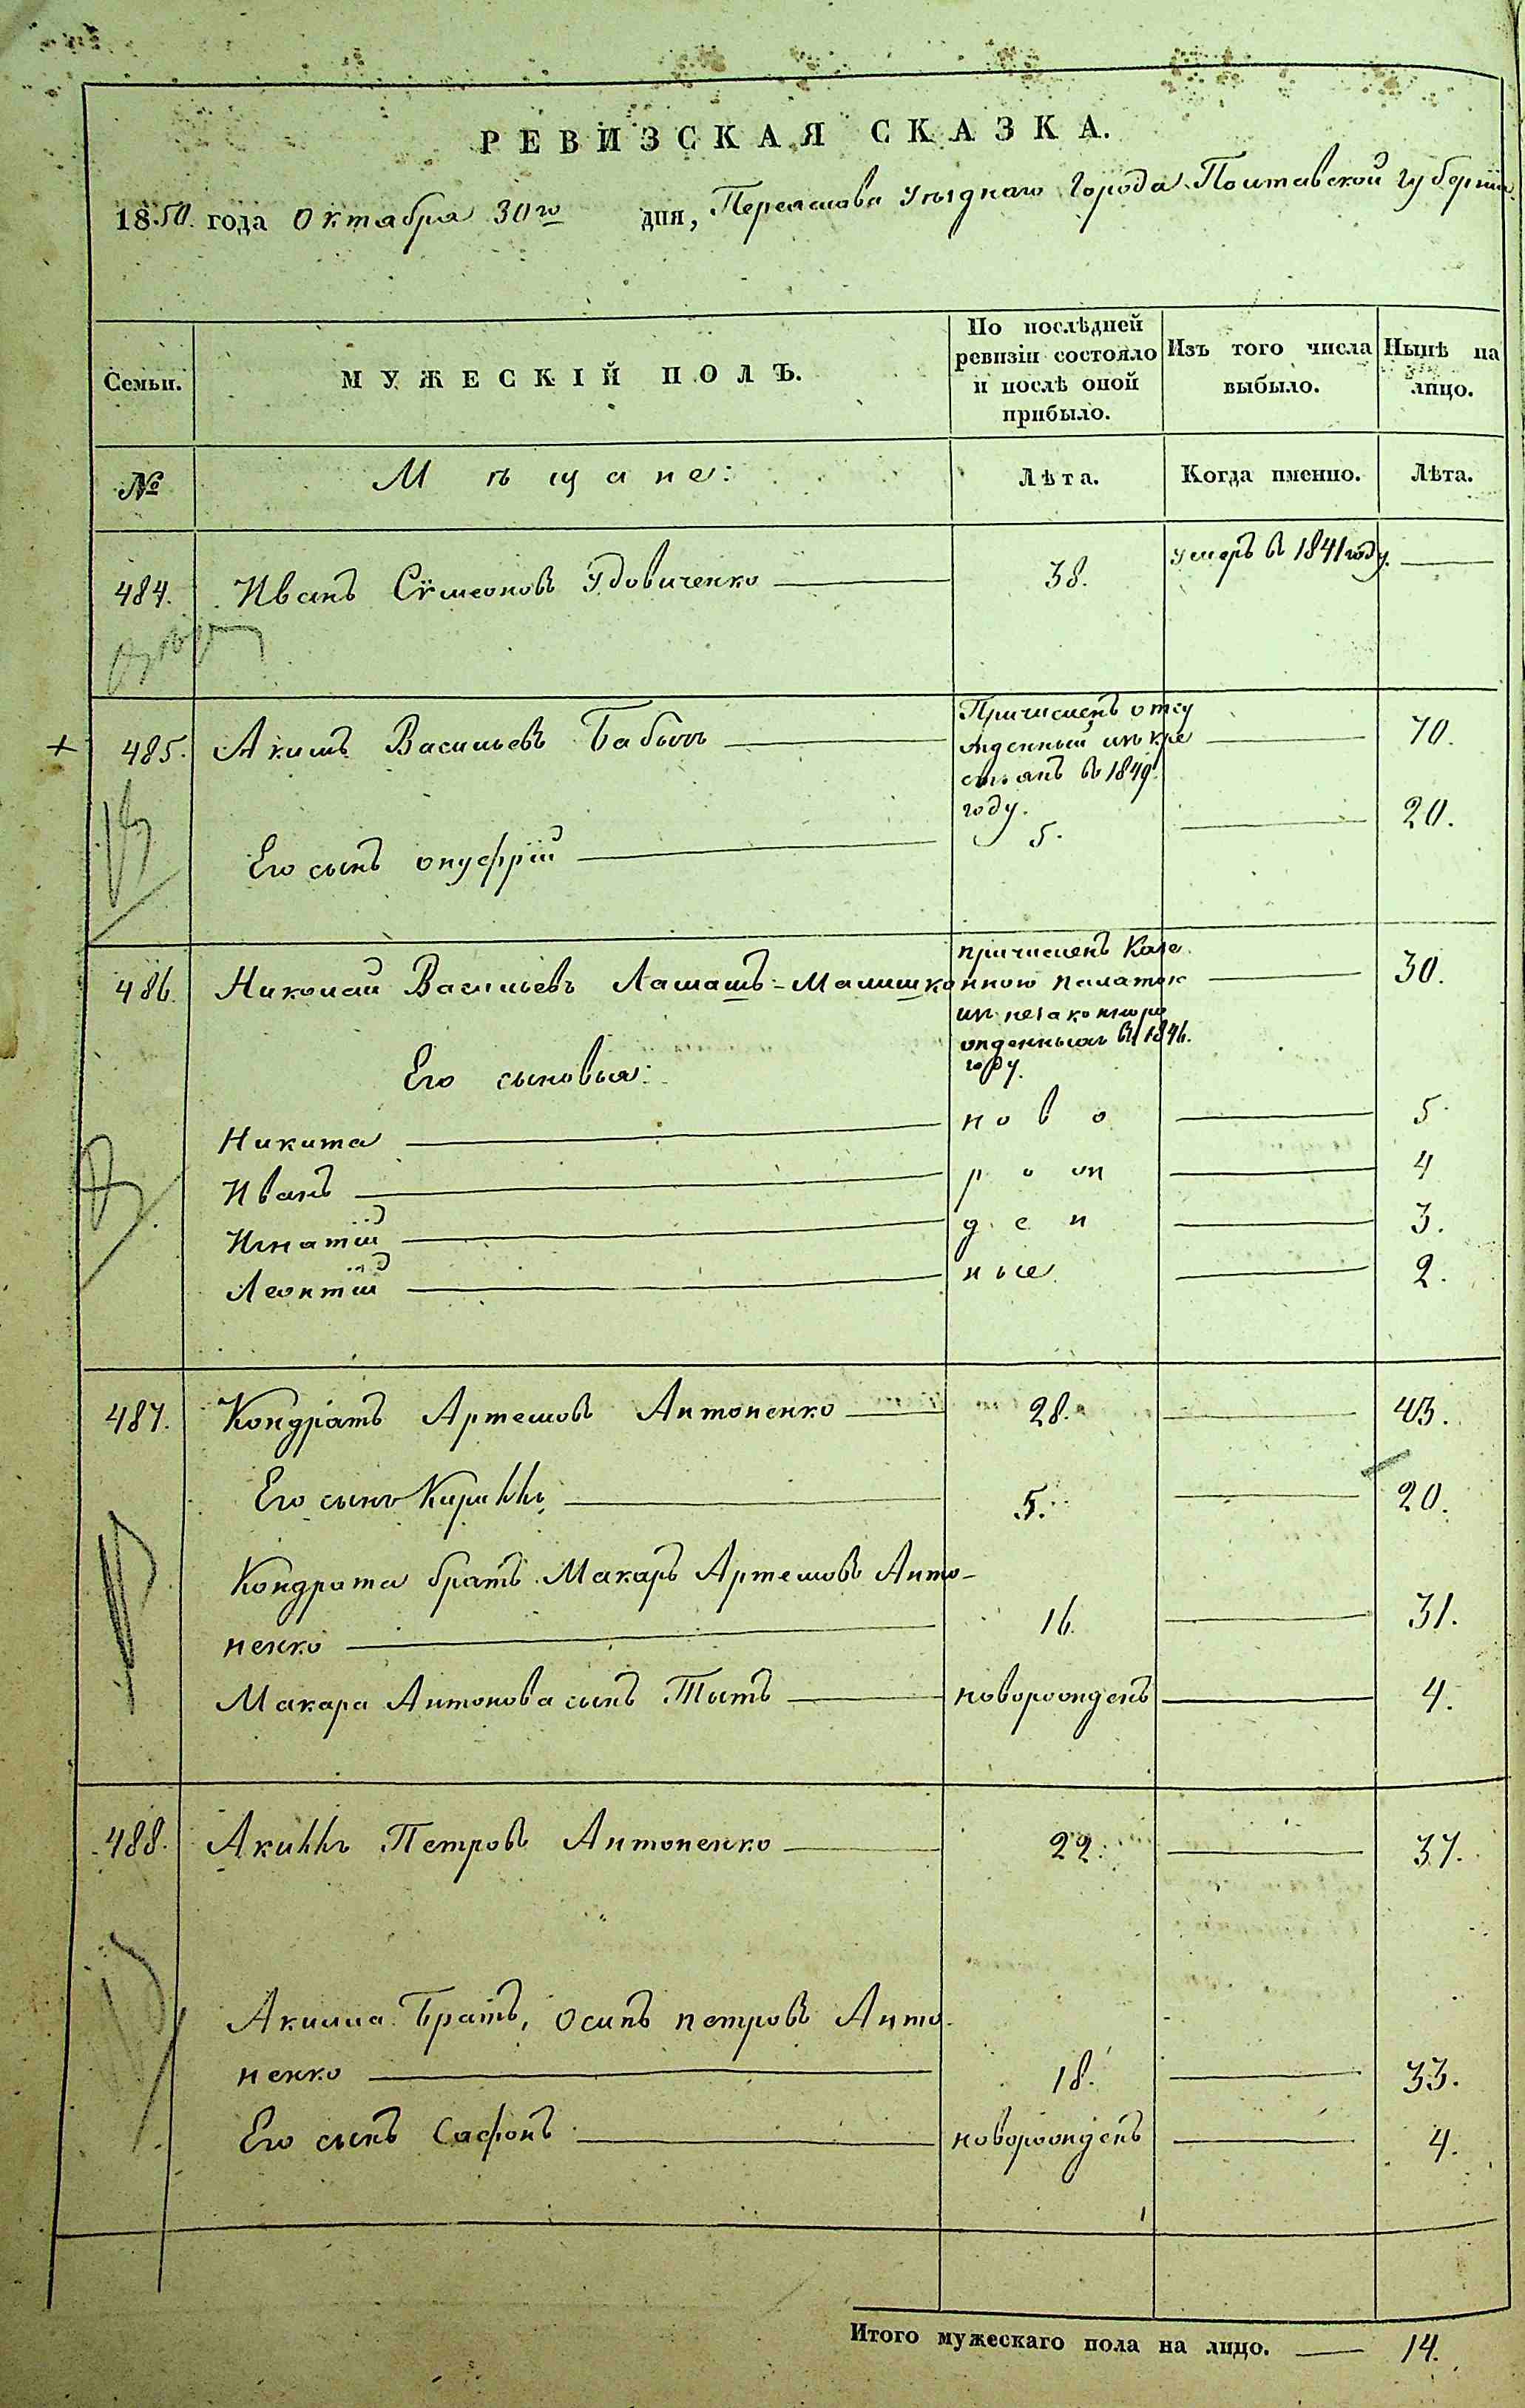 РЕВИЗСКАЯ СКАЗКА.
1850. года Октября 30го дня, Переяслова уѣзднаго города Полтавской губерніи.
Семьи. МУЖЕСКІЙ ПОЛЪ. По послѣдней ревизіи состояло и послѣ оной прибыло. Изъ того числа выбыло. Нынѣ на лицо.
№ Мѣщане: Лѣта. Когда именно. Лѣта.
484. Иванъ Сѵмеоновъ Удовиченко 38. умеръ въ 1841 году.
485. Акимъ Васильевъ Бабычъ 70.
Причисленъ отсу
жденный изъ кре
стьянъ въ 1849
году.
Его сынъ онуфрій 5. 20.
486. Николай Васильевъ Латашъ-Малишко 30.
причисленъ Казе
нною палатою
изъ незаконноро
жденныхъ въ 1846.
году.
Его сыновья:
Никита ново 5
Иванъ рож 4
Игнатій ден 3.
Леонтій ные 2.
487. Кондратъ Артемовъ Антоненко 28. 43.
Его сынъ Кириллъ 5. 20.
Кондрата братъ Макаръ Артемовъ Анто-
ненко 16. 31.
Макара Антонова сынъ Титъ новорожденъ 4.
488. Акиллъ Петровъ Антоненко 22. 37.
Акилла Братъ, Осипъ петровъ Анто-
ненко 18. 33.
Его сынъ Сафонъ новорожденъ 4.
Итого мужескаго пола на лицо. 14.